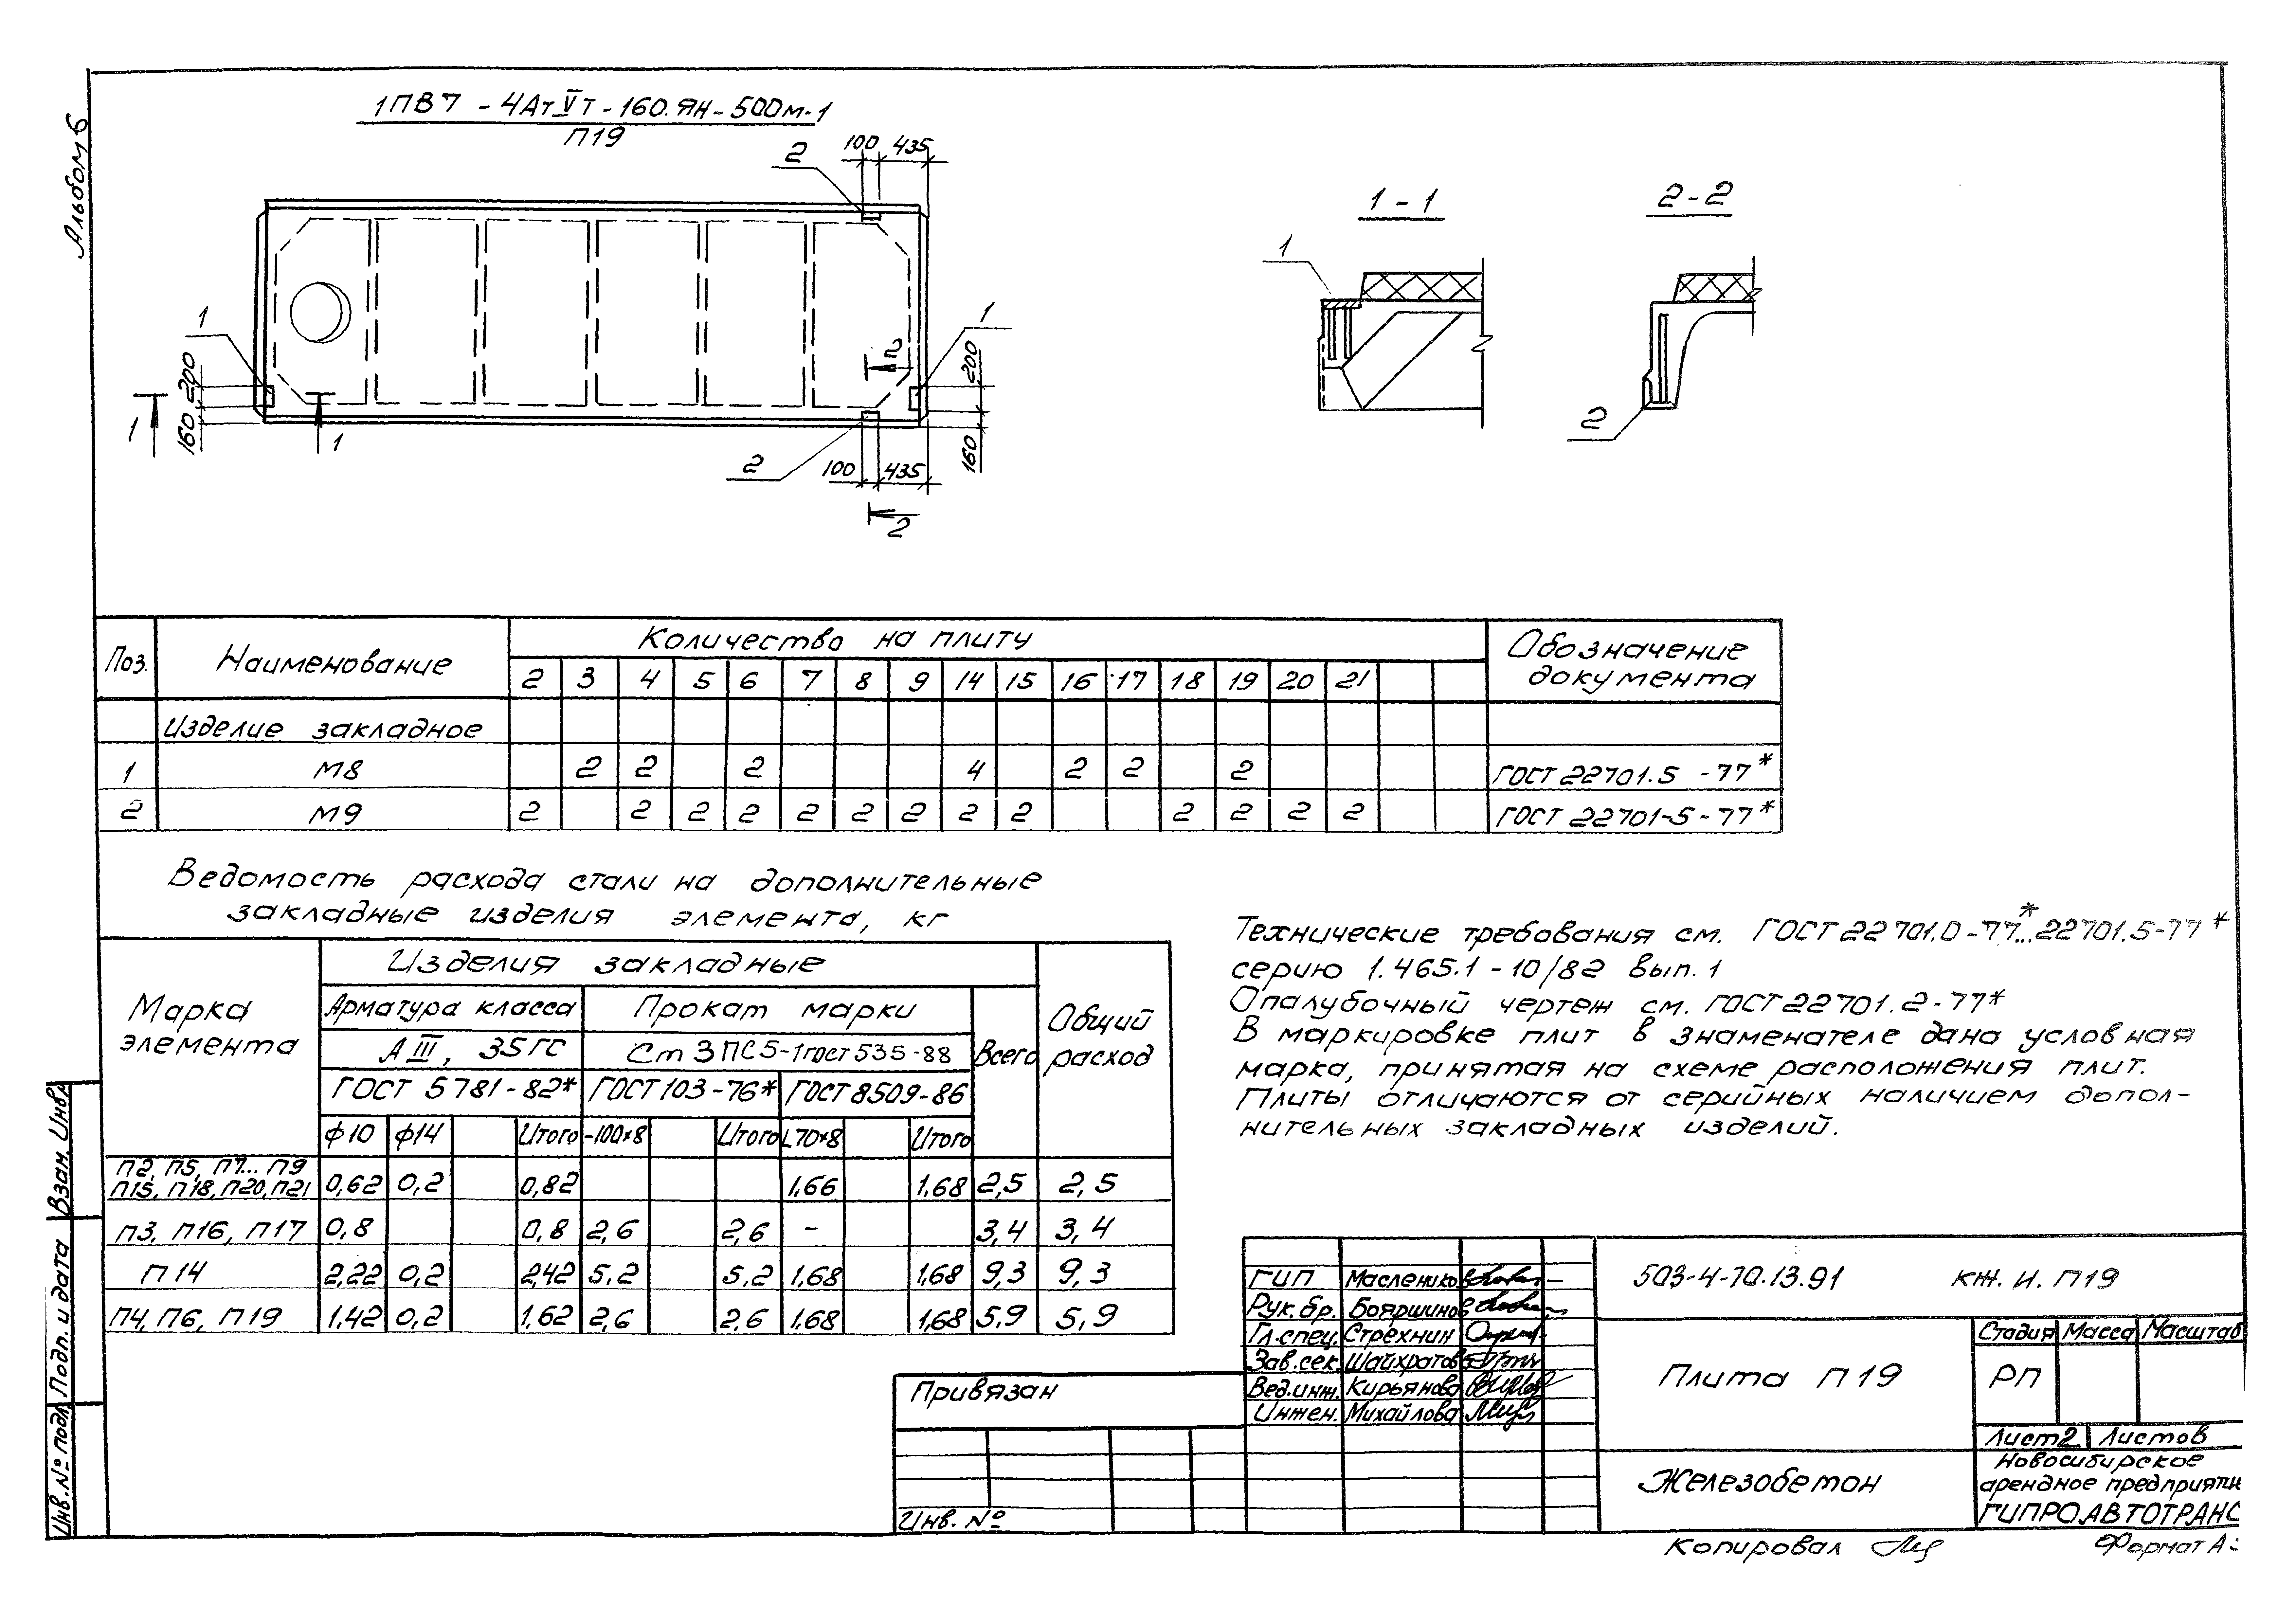 Альбом 6
1ПВ7 - 4АтⅤт - 160. ЯН - 500м-1
П19
2
100 435
1
200
160
1
1
1
200
160
2
2
100 435
2
1 - 1
1
2 - 2
2
Поз. Наименование Количество на плиту Обозначение документа
2 3 4 5 6 7 8 9 14 15 16 17 18 19 20 21
Изделие закладное
1 М8 2 2 2 4 2 2 2 ГОСТ 22701.5 - 77*
2 М9 2 2 2 2 2 2 2 2 2 2 2 2 2 ГОСТ 22701-5-77*
Ведомость расхода стали на дополнительные
закладные изделия элемента, кг
Марка элемента Изделия закладные Общий расход
Арматура класса Прокат марки Всего
А III, 35ГС Ст 3ПС5-1 гост 535-88
ГОСТ 5781-82* ГОСТ 103-76* ГОСТ 8509-86
ф10 ф14 Итого -100×8 Итого L70×8 Итого
П2, П5, П7... П9
П15, П18, П20, П21 0,62 0,2 0,82 1,66 1,68 2,5 2,5
П3, П16, П17 0,8 0,8 2,6 2,6 - 3,4 3,4
П14 2,22 0,2 2,42 5,2 5,2 1,68 1,68 9,3 9,3
П4, П6, П19 1,42 0,2 1,62 2,6 2,6 1,68 1,68 5,9 5,9
Технические требования см. ГОСТ 22701.0-77*...22701.5-77*
серию 1.465.1-10/82 вып. 1
Опалубочный чертеж см. ГОСТ 22701.2-77*
В маркировке плит в знаменателе дана условная
марка, принятая на схеме расположения плит.
Плиты отличаются от серийных наличием допол-
нительных закладных изделий.
ГИП Маслеников
Рук.бр. Бояршинов
Гл.спец. Стрехнин
Зав.сек. Шайхратов
Вед.инж. Кирьянова
Инжен. Михайлова
503-4-70.13.91 КЖ. И. П19
Плита П19
Стадия Масса Масштаб
РП
Лист 2 Листов
Железобетон
Новосибирское
арендное предприяти
ГИПРОАВТОТРАНС
Привязан
Инв. №
Взам. Инв.
Подп. и дата
Инв. № подл.
Копировал
Формат А